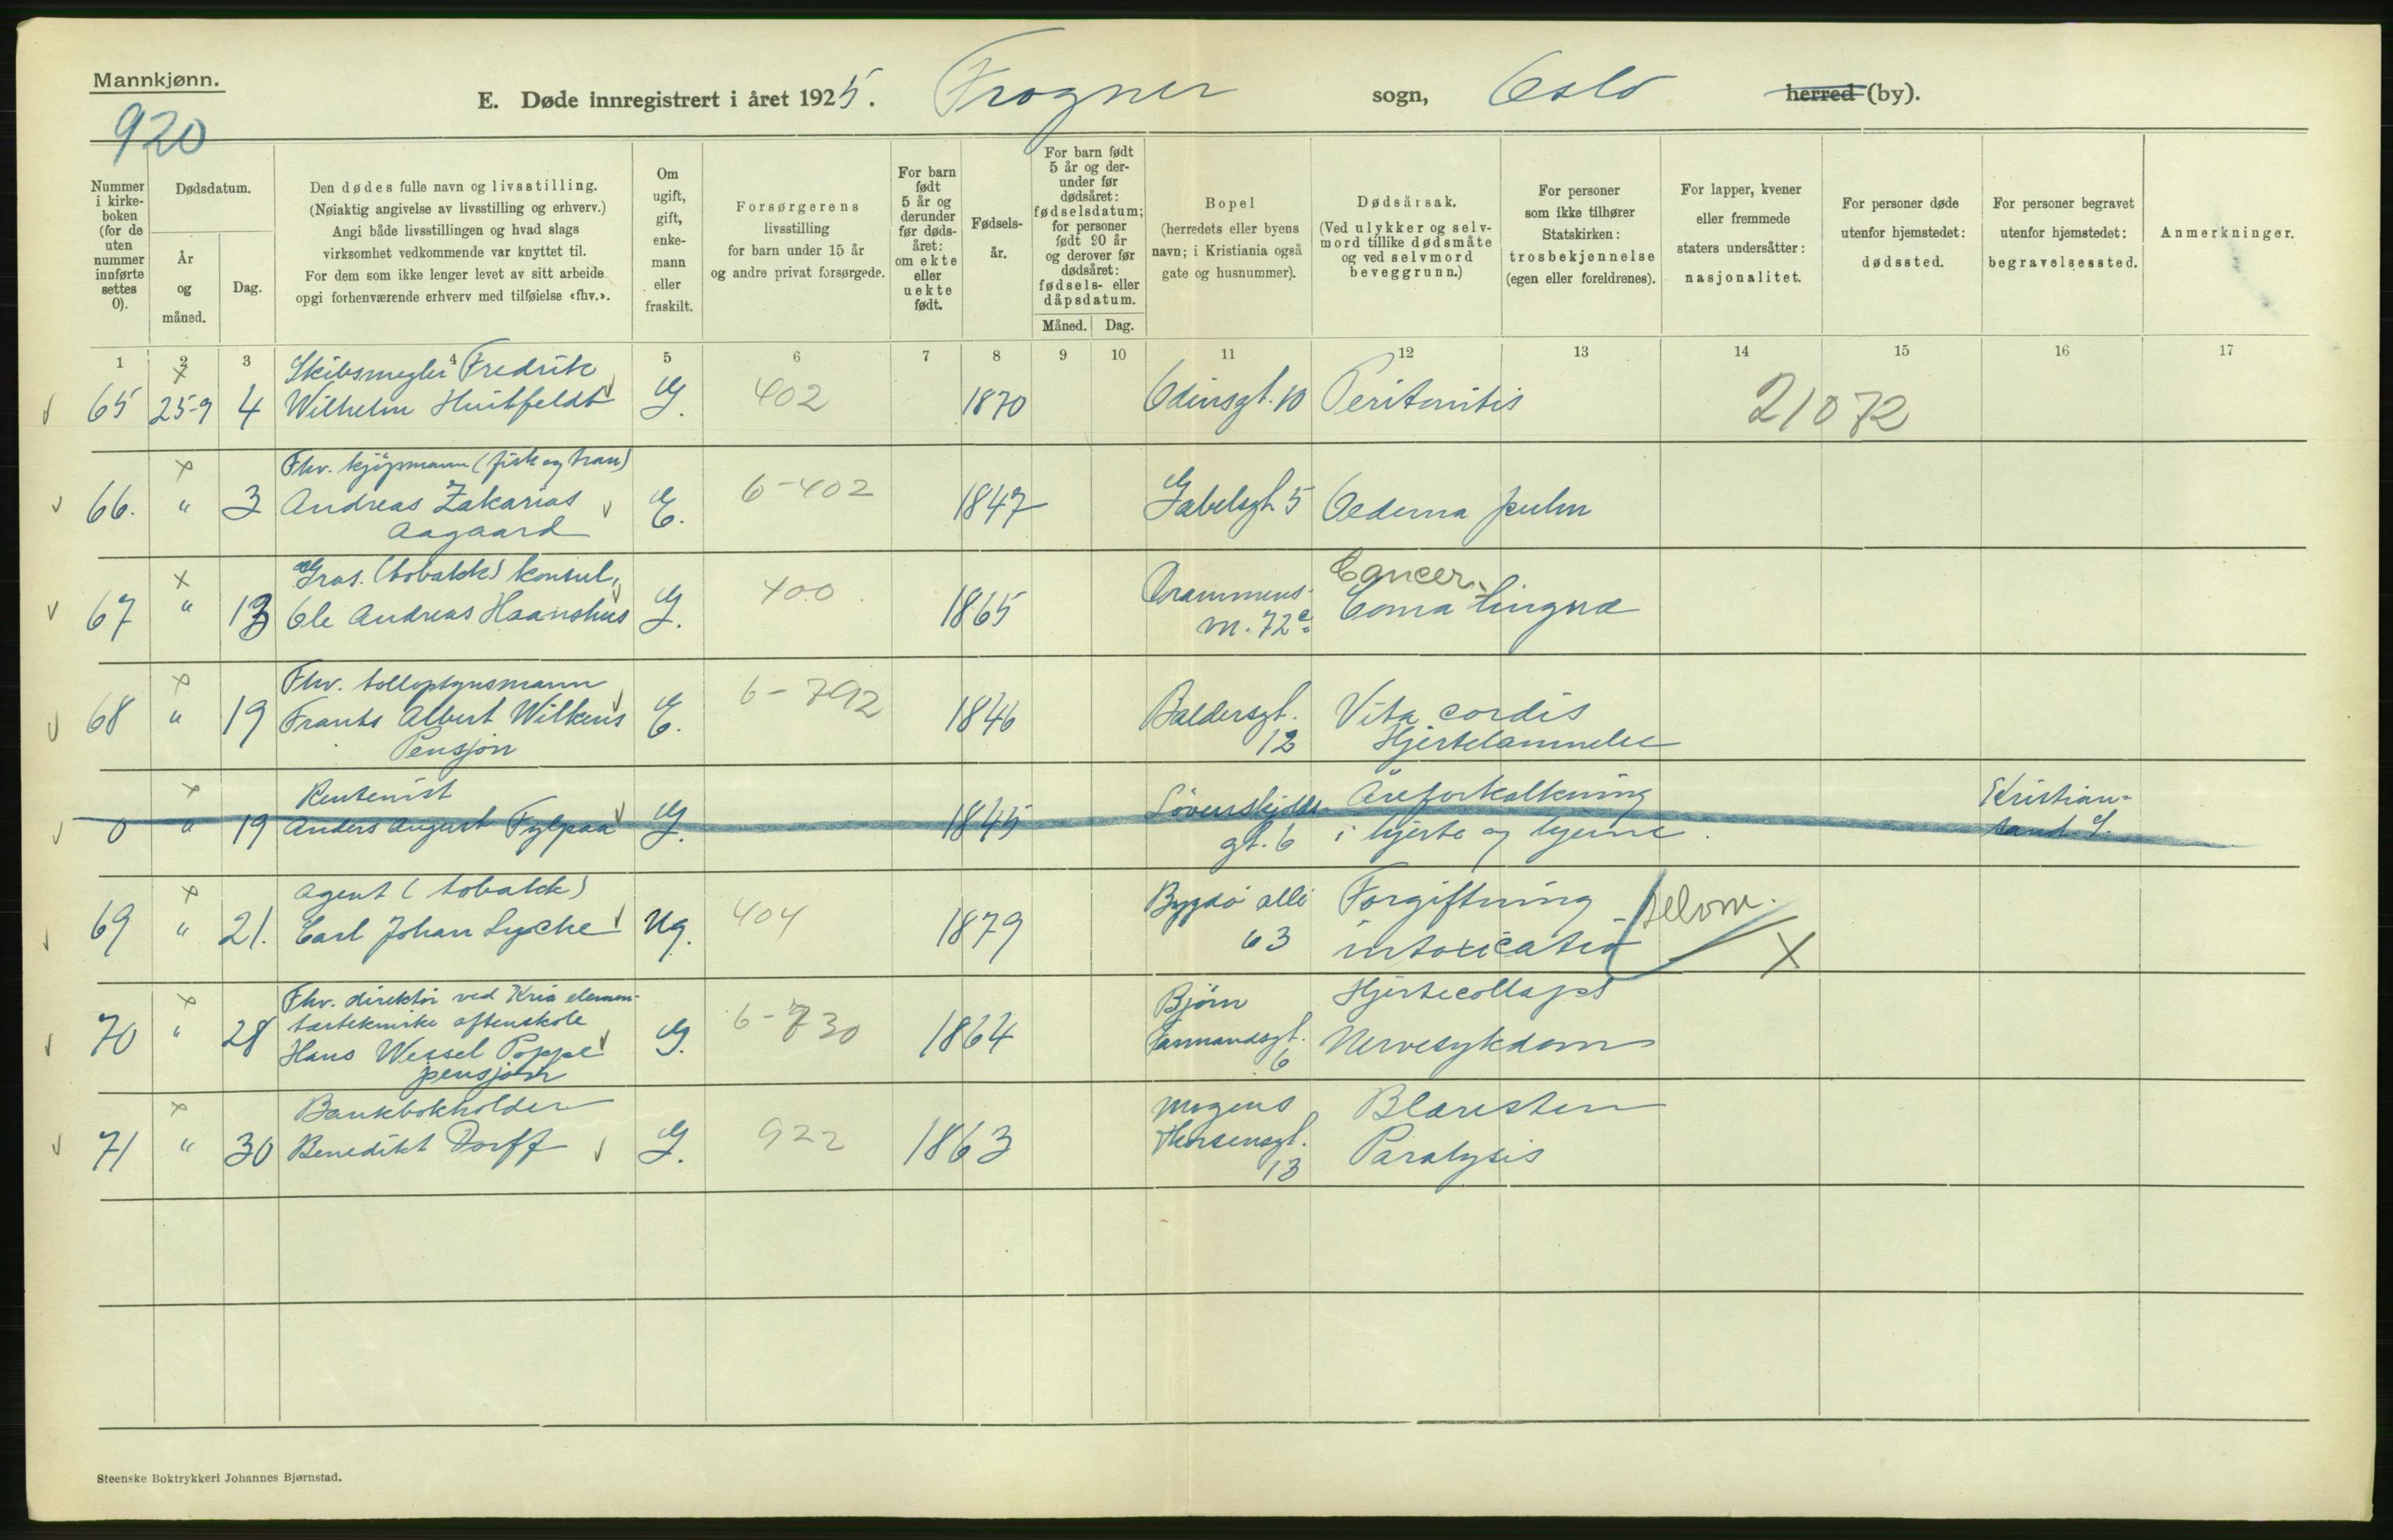 Mannkjønn.
920
E. Døde innregistrert i året 1925. Frogner sogn, Oslo herred (by).
Nummer i kirke-boken (for de uten nummer innførte settes 0).
Dødsdatum.
År og måned.
Dag.
Den dødes fulle navn og livsstilling.
(Nøiaktig angivelse av livsstilling og erhverv.)
Angi både livsstillingen og hvad slags
virksomhet vedkommende var knyttet til.
For dem som ikke lenger levet av sitt arbeide
opgi forhenværende erhverv med tilføielse «fhv.».
Om ugift, gift, enke-mann eller fraskilt.
Forsørgerens
livsstilling
for barn under 15 år
og andre privat forsørgede.
For barn født 5 år og derunder før døds-året: om ekte eller uekte født.
Fødsels-år.
For barn født 5 år og der-under før dødsåret: fødselsdatum; for personer født 90 år og derover før dødsåret: fødsels- eller dåpsdatum.
Måned. Dag.
Bopel
(herredets eller byens
navn; i Kristiania også
gate og husnummer).
Dødsårsak.
(Ved ulykker og selv-
mord tillike dødsmåte
og ved selvmord
beveggrunn.)
For personer
som ikke tilhører
Statskirken:
trosbekjennelse
(egen eller foreldrenes).
For lapper, kvener
eller fremmede
staters undersåtter:
nasjonalitet.
For personer døde
utenfor hjemstedet:
dødssted.
For personer begravet
utenfor hjemstedet:
begravelsessted.
Anmerkninger.
1 2 3 4 5 6 7 8 9 10 11 12 13 14 15 16 17
x Skibsmegler Fredrik
65 25-9 4 Wilhelm Huitfeldt G. 402 1870 Odinsgt. 10 Peritonitis 21072
x Fhv. kjøpmann (fisk og tran)
66. " 3 Andreas Zakarias E. 6-402 1847 Gabelsgt 5 Oedema pulm
Aagaard
x Gros. (tobakk) konsul, Cancer
67 " 13 Ole Andreas Haanshus G. 400 1865 Drammens- Coma lingvæ
v. 72c
x Fhv. tollopsynsmann 6-792
68 " 19 Frants Albert Wilkens E. 1846 Baldersgt. Vita cordis
Pensjon 12 Hjertelammelse
x Rentenist Løvenskjolds- Åreforkalkning Kristian-
0 " 19 Anders August Fylpaa G. 1845 gt. 6 i hjerte og hjerne. sand S.
x Agent (tobakk) Bygdø allé Forgiftning Selvm.
69 " 21. Carl Johan Lyche Ug. 404 1879 63 intoxicatio x
x Fhv. direktør ved Kria elemen- Bjørn Hjertecollaps
70 " 28 tærtekniske aftenskole G. 6-730 1864 Farmandsgt. Nervesykdom
Hans Wessel Poppe 6
pensjon
x Bankbokholder Mogens Blæresten
71 " 30 Benedikt Dorff G. 922 1863 Thorsensgt. Paralysis
13
Steenske Boktrykkeri Johannes Bjørnstad.